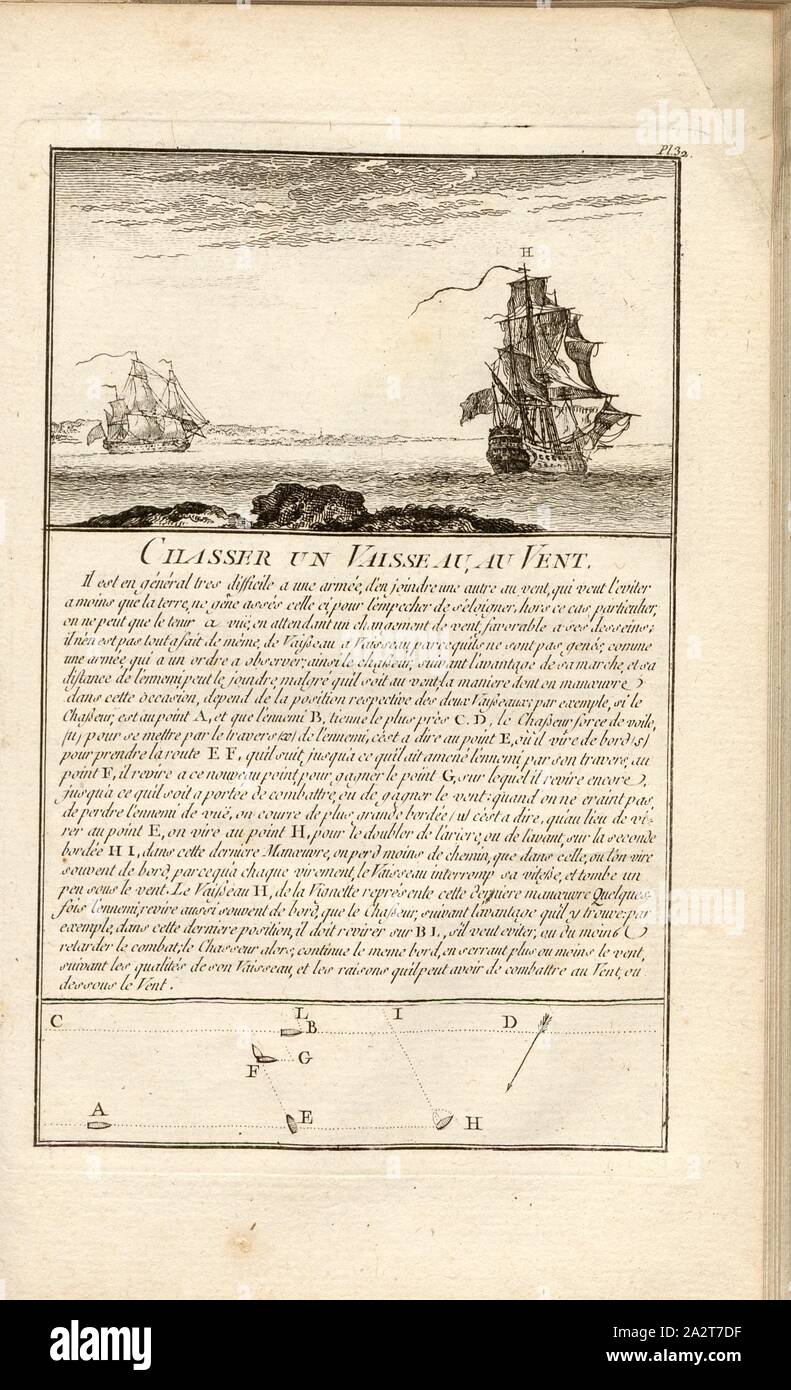 Pl.32.
H
CHASSER UN VAISSEAU, AU VENT.
Il est en général tres difficile a une armée, d'en joindre une autre au vent, qui veut l'eviter
a moins que la terre, ne gêne assés celle ci, pour l'empecher de s'éloigner, hors ce cas particulier,
on ne peut que le tenir a vuë, en attendant un changement de vent, favorable a ses desseins;
il n'en est pas tout a fait de même, de Vaisseau a Vaisseau, parcequ'ils ne sont pas genés; comme
une armée, qui a un ordre a observer; ainsi le chasseur, suivant l'avantage de sa marche, et sa
distance de l'ennemi, peut le joindre, malgré qu'il soit au vent; la maniere dont on manœuvre
dans cette occasion, dépend de la position respective des deux Vaisseaux; par exemple, si le
Chasseur, est au point A, et que l'ennemi B, tienne le plus près C.D, le Chasseur force de voile,
(u) pour se mettre par le travers (x) de l'ennemi, c'est a dire au point E, où il vire de bord (s)
pour prendre la route E F, qu'il suit, jusqu'a ce qu'il ait amené l'ennemi par son travers, au
point F, il revire a ce nouveau point, pour gagner le point G, sur lequel il revire encore,
jusqu'a ce qu'il soit a portée de combattre, ou de gagner le vent: quand on ne craint pas,
de perdre l'ennemi de vuë, on courre de plus grande bordée (u) c'est a dire, qu'au lieu de vi-
rer au point E, on vire au point H, pour le doubler de l'ariere, ou de l'avant, sur la seconde
bordée H I, dans cette derniere Manœuvre, on perd moins de chemin, que dans celle, ou l'on vire
souvent de bord, parcequ'a chaque virement, le Vaisseau interromp sa vitesse, et tombe un
peu sous le vent. Le Vaisseau H, de la Vignette représente cette dernière manœuvre Quelques-
fois l'ennemi, revire aussi souvent de bord, que le Chasseur, suivant l'avantage qu'il y trouve: par
exemple, dans cette derniere position, il doit revirer sur B L, s'il veut eviter, ou du moins
retarder le combat; le Chasseur alors, continue le meme bord, en serrant plus ou moins le vent,
suivant les qualités de son Vaisseau, et les raisons qu'il peut avoir de combattre au Vent, ou
dessous le Vent.
C L B I D
F G
A E H
alamy
Image ID: 2A2T7DF
www.alamy.com